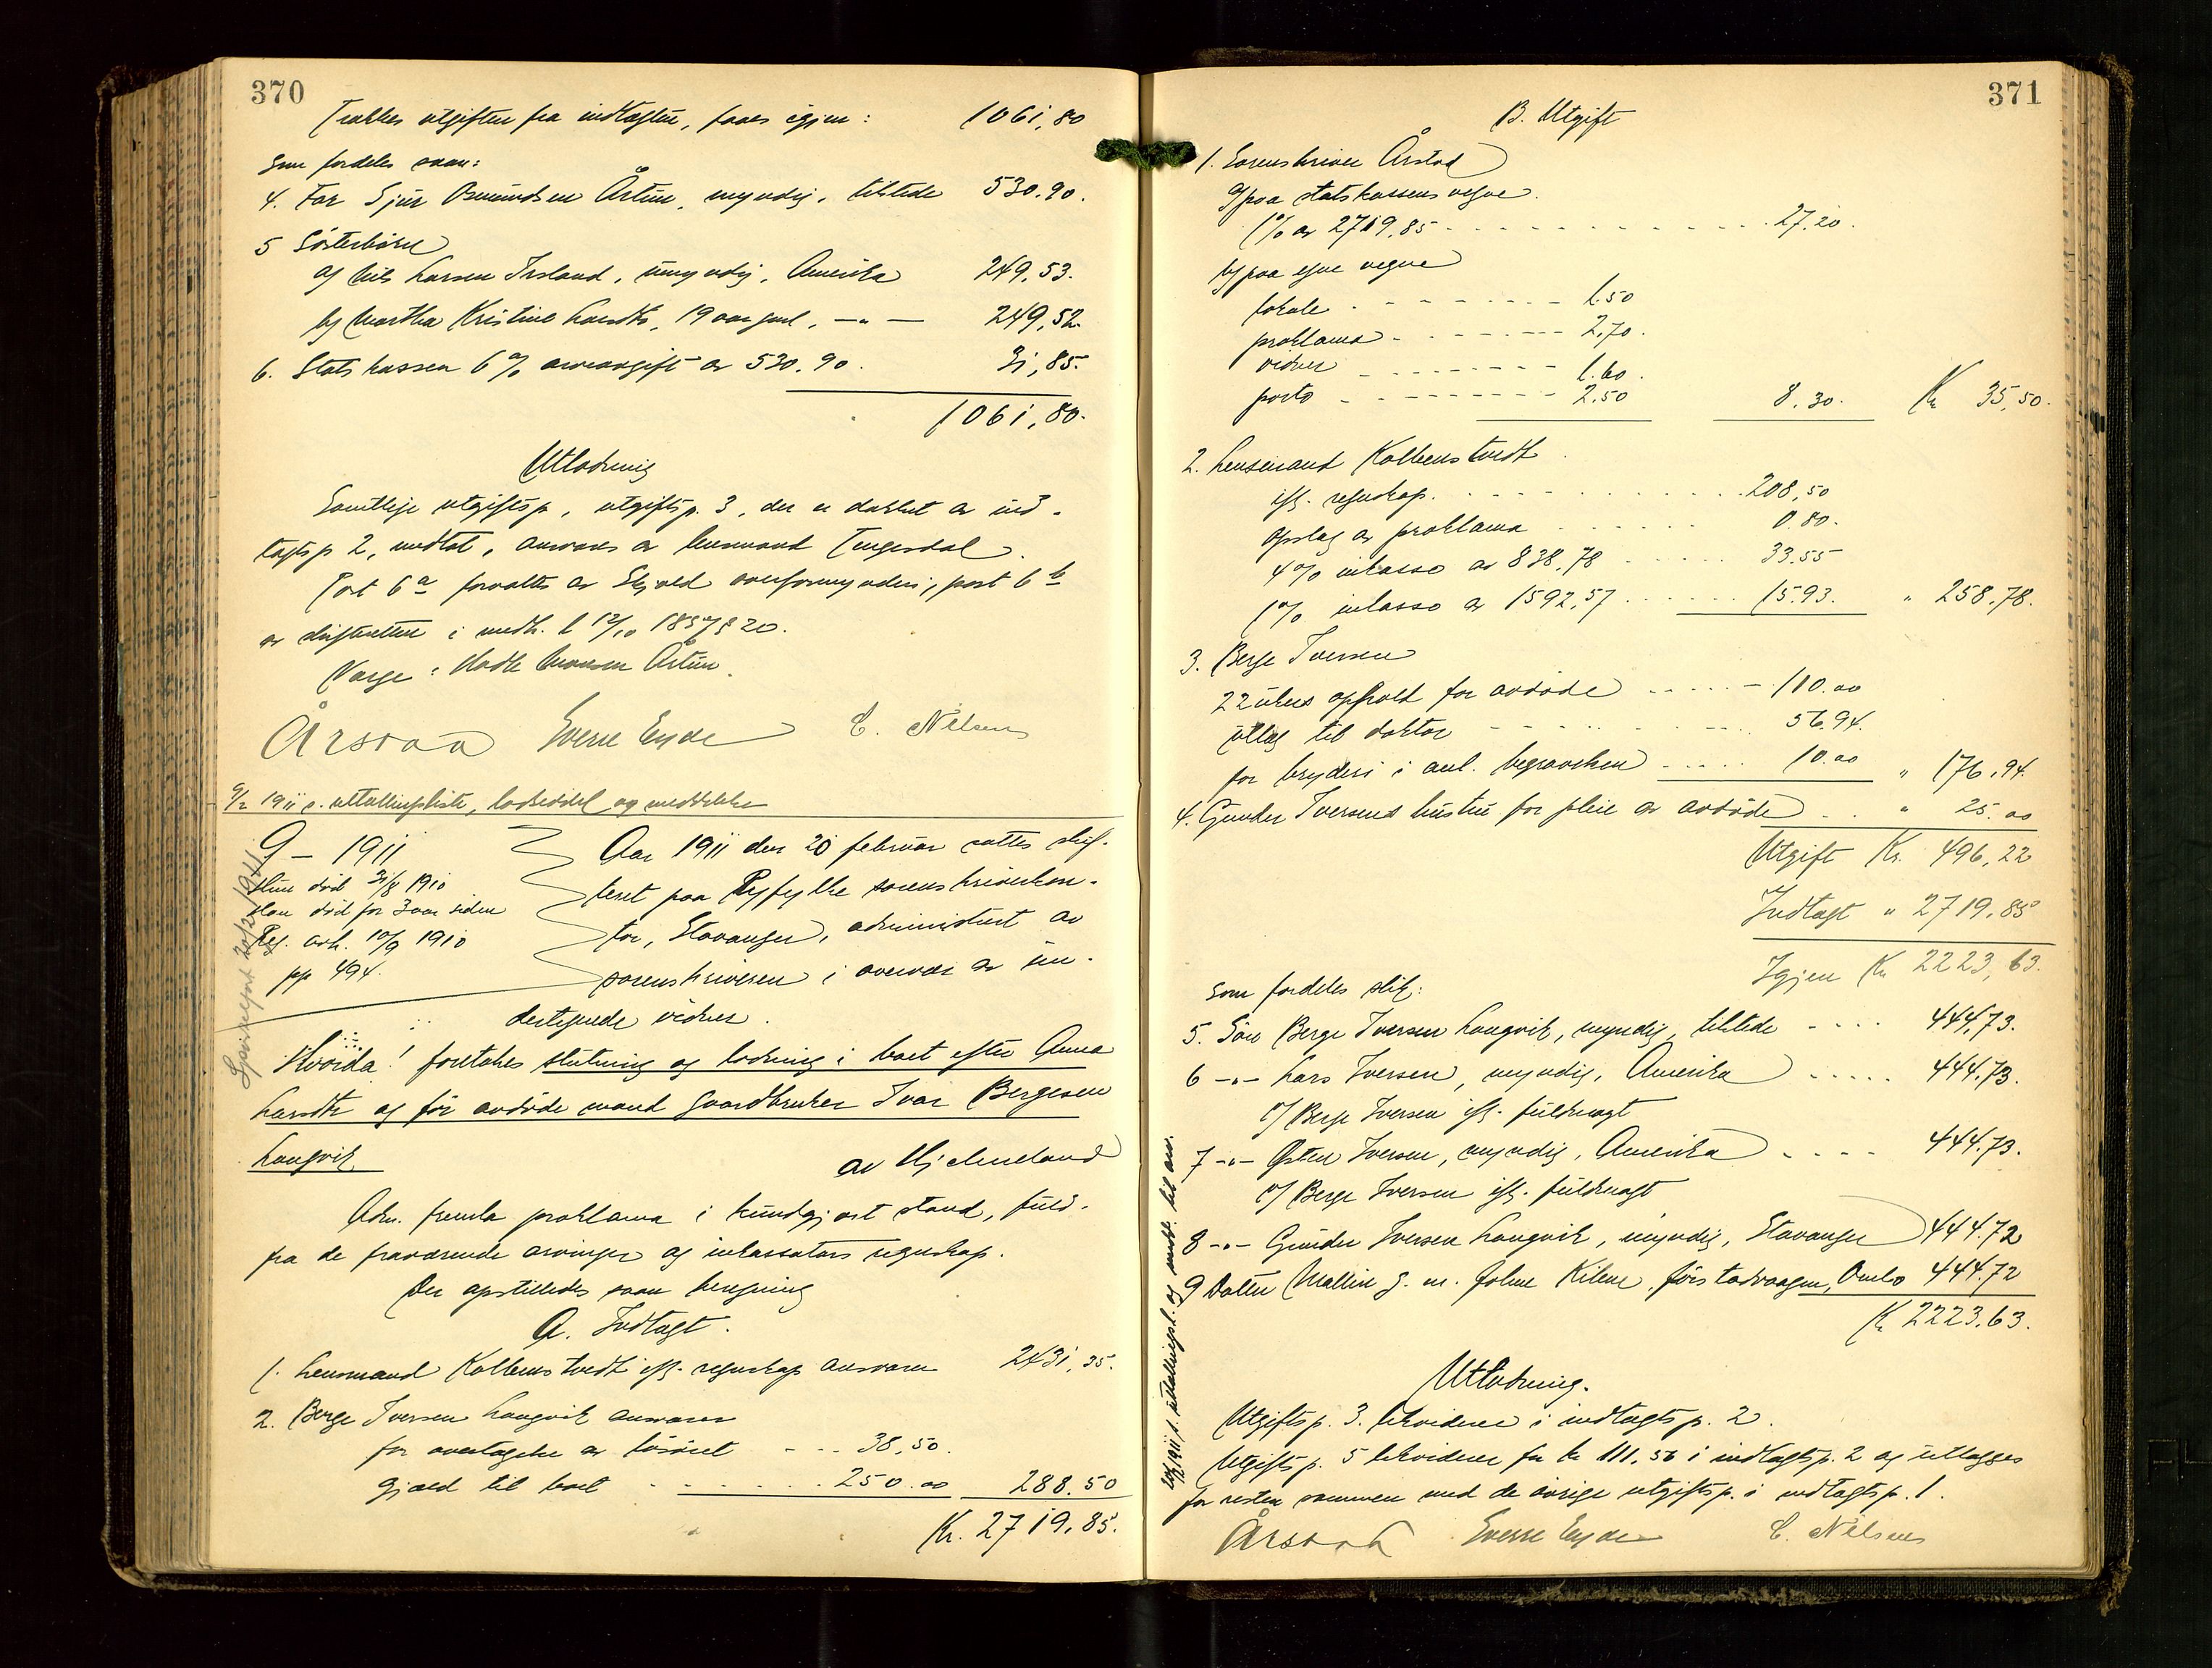 370
Trækkes utgiften fra indtægten, faaes igjen: 1061,80
som fordeles saan:
4. Far Sjur Osmundsen Årtun, myndig, tilstede 530.90.
5 Søsterbørn
a) Nils Larsen Irsland, umyndig, Amerika 249,53.
b) Martha Kristine Larsdtr, 19 aar gml, —"— 249,52.
6. Statskassen 6% arveavgift av 530.90. 31,85.
1061,80.
Utlodning
Samtlige utgiftsp, utgiftsp. 3, der er dækket av ind-
tægtsp 2, undtat, anvises av lensmand Tengesdal.
Post 6a forvaltes av Skjold overformynderi, post 6b
av skifteretten i medh. l 12/10 1857 § 20.
Værge: Hadle Monsen Årtun.
Årstad Sverre Eyde C. Nilsen
9/2 1911 s. uttællingsliste, lodseddel og meddelelse
9 – 1911
Hun død 31/8 1910
Han død for 3 aar siden
Reg. avh. 10/9 1910
pp 494.
Aar 1911 den 20 februar sattes skif-
teret paa Ryfylke sorenskriverkon-
tor, Stavanger, administrert av
sorenskriveren i overvær av un-
dertegnede vidner.
Hvorda! foretokes slutning og lodning i boet efter Anna
Larsdtr og før avdøde mand gaardbruker Ivar Bergesen
Laugvik av Hjelmeland
Adm. fremla proklama i kundgjort stand, fuld.
fra de fraværende arvinger og inkassators regnskap.
Der opstilledes saan beregning
A. Indtægt.
1. Lensmand Kolbenstvedt ifl. regnskap ansvarer 2431,35.
2. Berge Iversen Laugvik ansvarer
for overtagelse av løsøret - - - 38,50.
gjæld til boet - - - - - - 250.00 288.50
Kr. 2719,85.
371
B. Utgift
1. Sorenskriver Årstad
a) paa statskassens vegne.
1% av 2719,85 - - - - - - 27.20.
b) paa egne vegne
lokale - - - - - - 1.50
proklama - - - - - - 2,70.
vidner - - - - - - 1.60.
porto - - - - - - 2.50 8.30. Kr 35,50.
2. Lensmand Kolbenstvedt
ifl. regnskap. - - - - - - 208,50
opslag av proklama - - - - - 0.80.
4% inkasso av 838.78 - - - - - 33.55
1% inkasso av 1592,57 - - - - - 15.93. " 258.78.
3. Berge Iversen
22 ukers ophold for avdøde - - - - - 110.00
utlæg til doktor - - - - - 56.94.
for bryderi i anl. begravelsen - - - - - 10.00 " 176,94.
4. Gunder Iversens hustru for pleie av avdøde - - " 25.00
Utgift Kr. 496,22
Indtægt " 2719,85
Igjen Kr 2223,63.
som fordeles slik:
5. Søn Berge Iversen Laugvik, myndig, tilstede - - - - 444,73.
6 -"- Lars Iversen, myndig, Amerika - - - - - 444.73.
v/ Berge Iversen ifl. fuldmagt
7 -"- Østen Iversen, myndig, Amerika - - - - 444.73.
v/ Berge Iversen ifl. fuldmagt
8 -"- Gunder Iversen Laugvik, myndig, Stavanger 444.72
9 Datter Mallin g. m. Johne Kilene, Jørstadvaagen, Ombo 444.72
Kr 2223.63.
Utlodning.
Utgiftsp. 3. likviderer i indtægtsp. 2.
Utgiftsp. 5 likviderer for kr 111.56 i indtægtsp. 2 og utlægges
for resten sammen med de øvrige utgiftsp. i indtægtsp. 1.
Årstad Sverre Eyde C. Nilsen